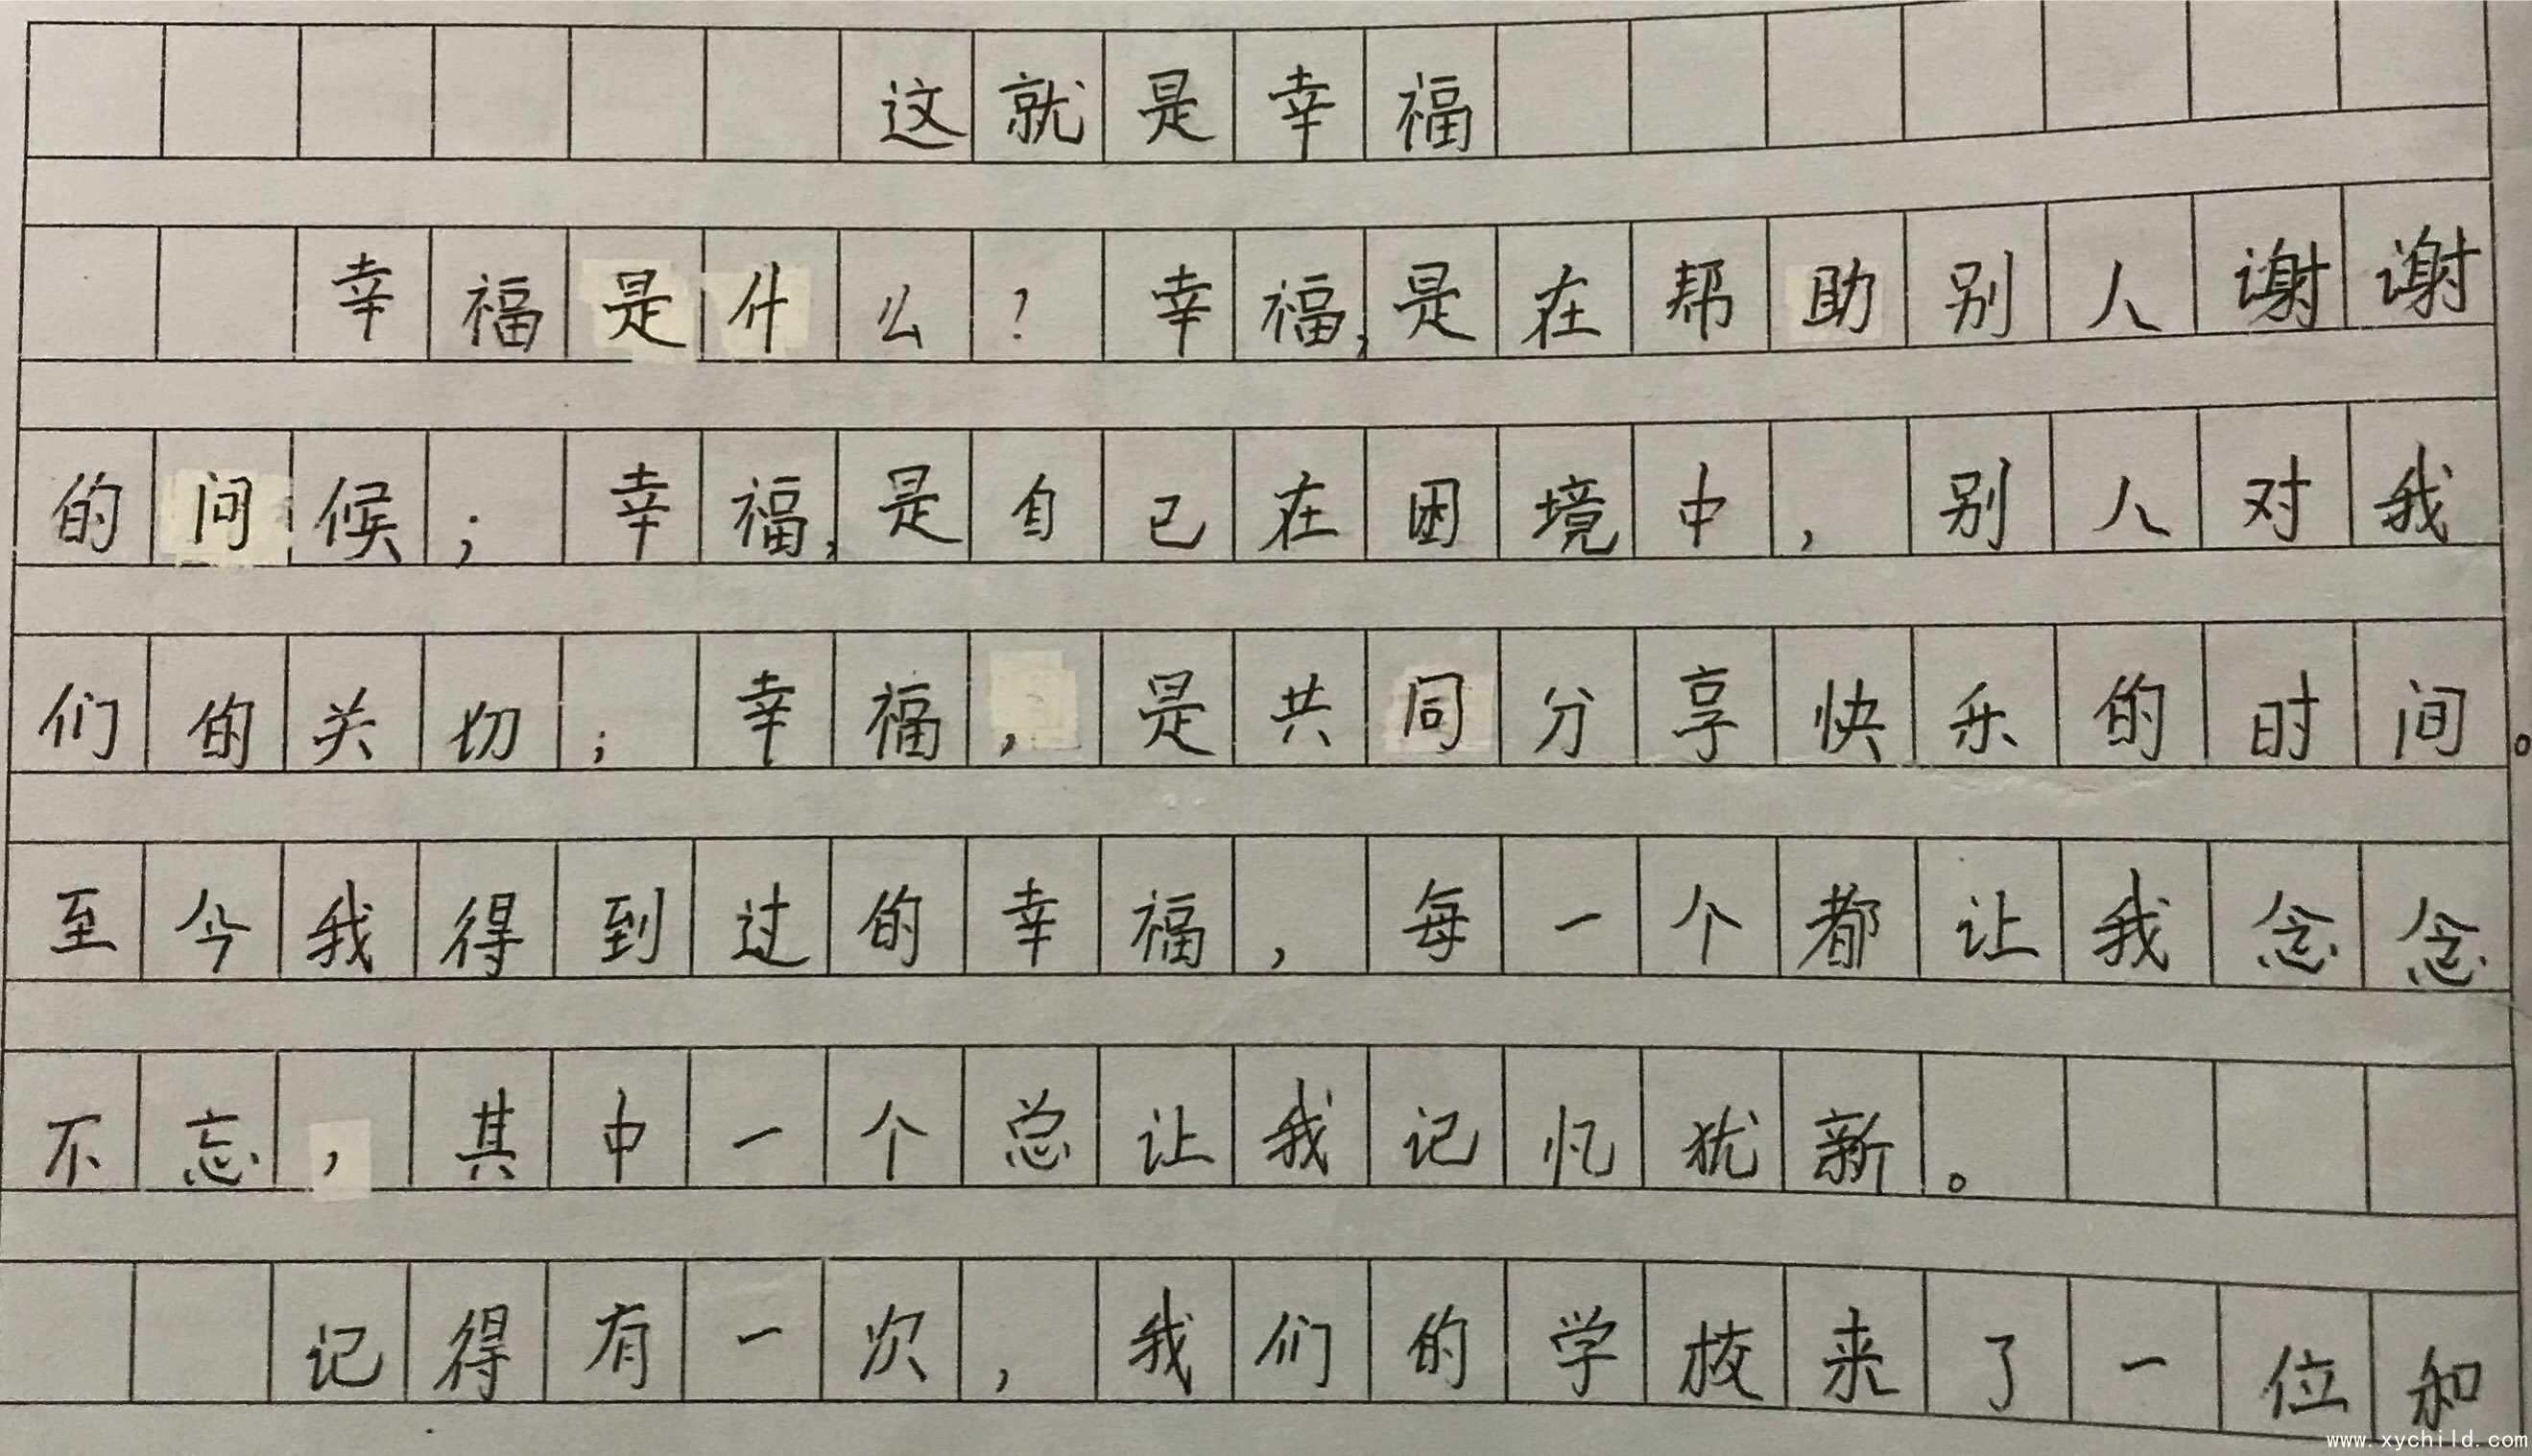 这就是幸福
幸福是什么?幸福,是在帮助别人谢谢
的问候;幸福,是自己在困境中,别人对我
们的关切;幸福,是共同分享快乐的时间。
至今我得到过的幸福,每一个都让我念念
不忘,其中一个总让我记忆犹新。
记得有一次,我们的学校来了一位和
www.xychild.com